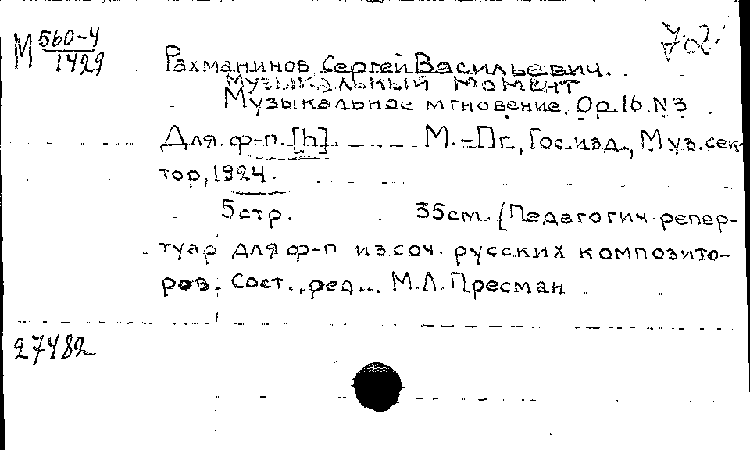 М 560-4/1429
702
Рахманинов Сергей Васильевич.
Музыкальный момент
Музыкальное мгновение. Op.16.N3
Для ф-п. [h]. М.-Пг., Гос.изд., Муз.сек-
тор, 1924.
5стр. 35см. (Педагогич. репер-
туар для ф-п из соч. русских композито-
ров. Сост., ред... М.Л.Пресман
27482